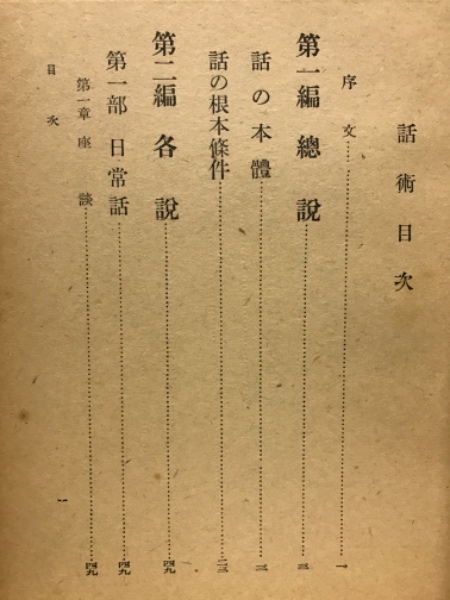 話術目次
序文……………一
第一編 總說……………三
話の本體……………三
話の根本條件……………二三
第二編 各說……………四九
第一部 日常話……………四九
第一章 座談……………四九
目次
一